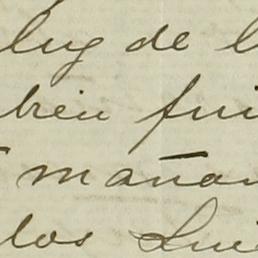 luz de l
bien fui
mañan
los Lui